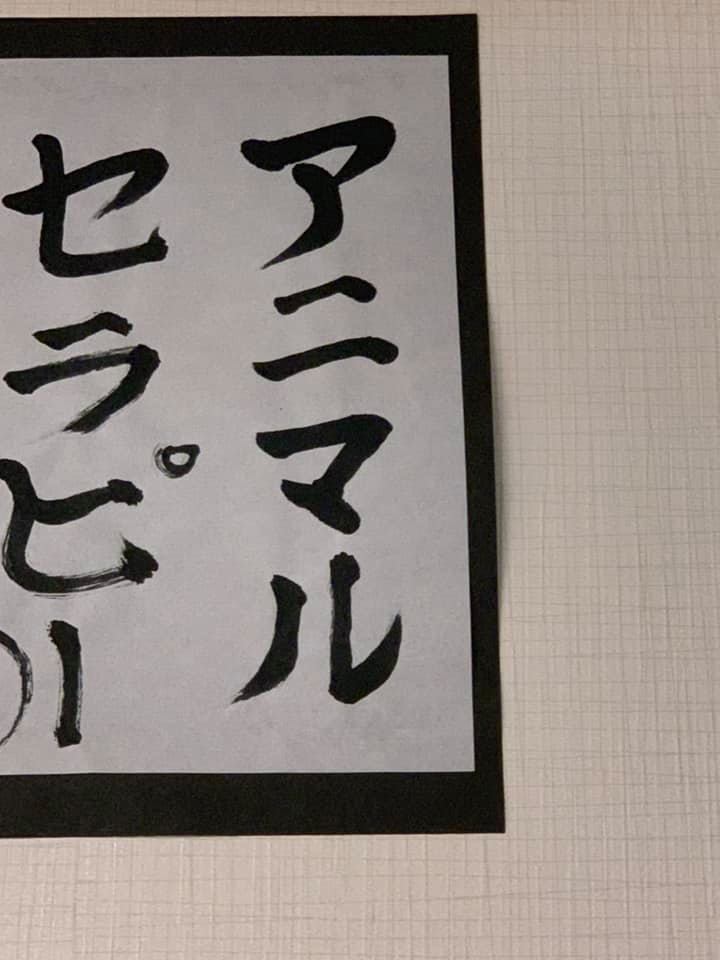 アニマル
セラピー